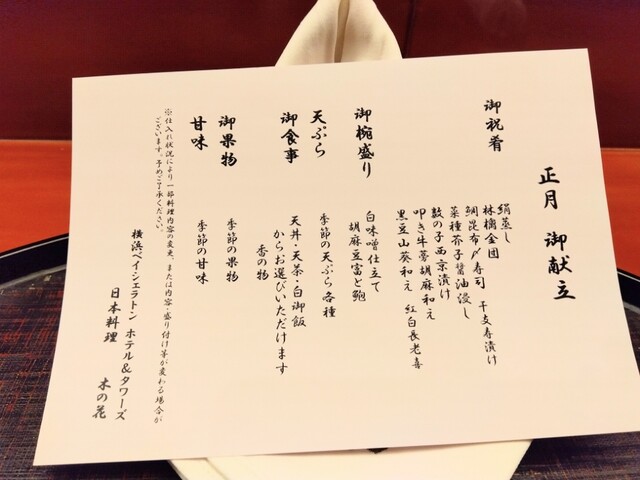 正月 御献立
御祝肴
絹蒸し
林檎金団 干支寿漬け
鯛昆布〆寿司
菜種芥子醤油浸し
数の子西京漬け
叩き牛蒡胡麻和え
黒豆山葵和え 紅白長老喜
御椀盛り
白味噌仕立て
胡麻豆富と鮑
天ぷら
季節の天ぷら各種
御食事
天丼・天茶・白御飯
からお選びいただけます
香の物
御果物
季節の果物
甘味
季節の甘味
※仕入れ状況により一部料理内容の変更、または内容・盛り付け等が変わる場合が
ございます。予めご了承ください。
横浜ベイシェラトン ホテル&タワーズ
日本料理 木の花